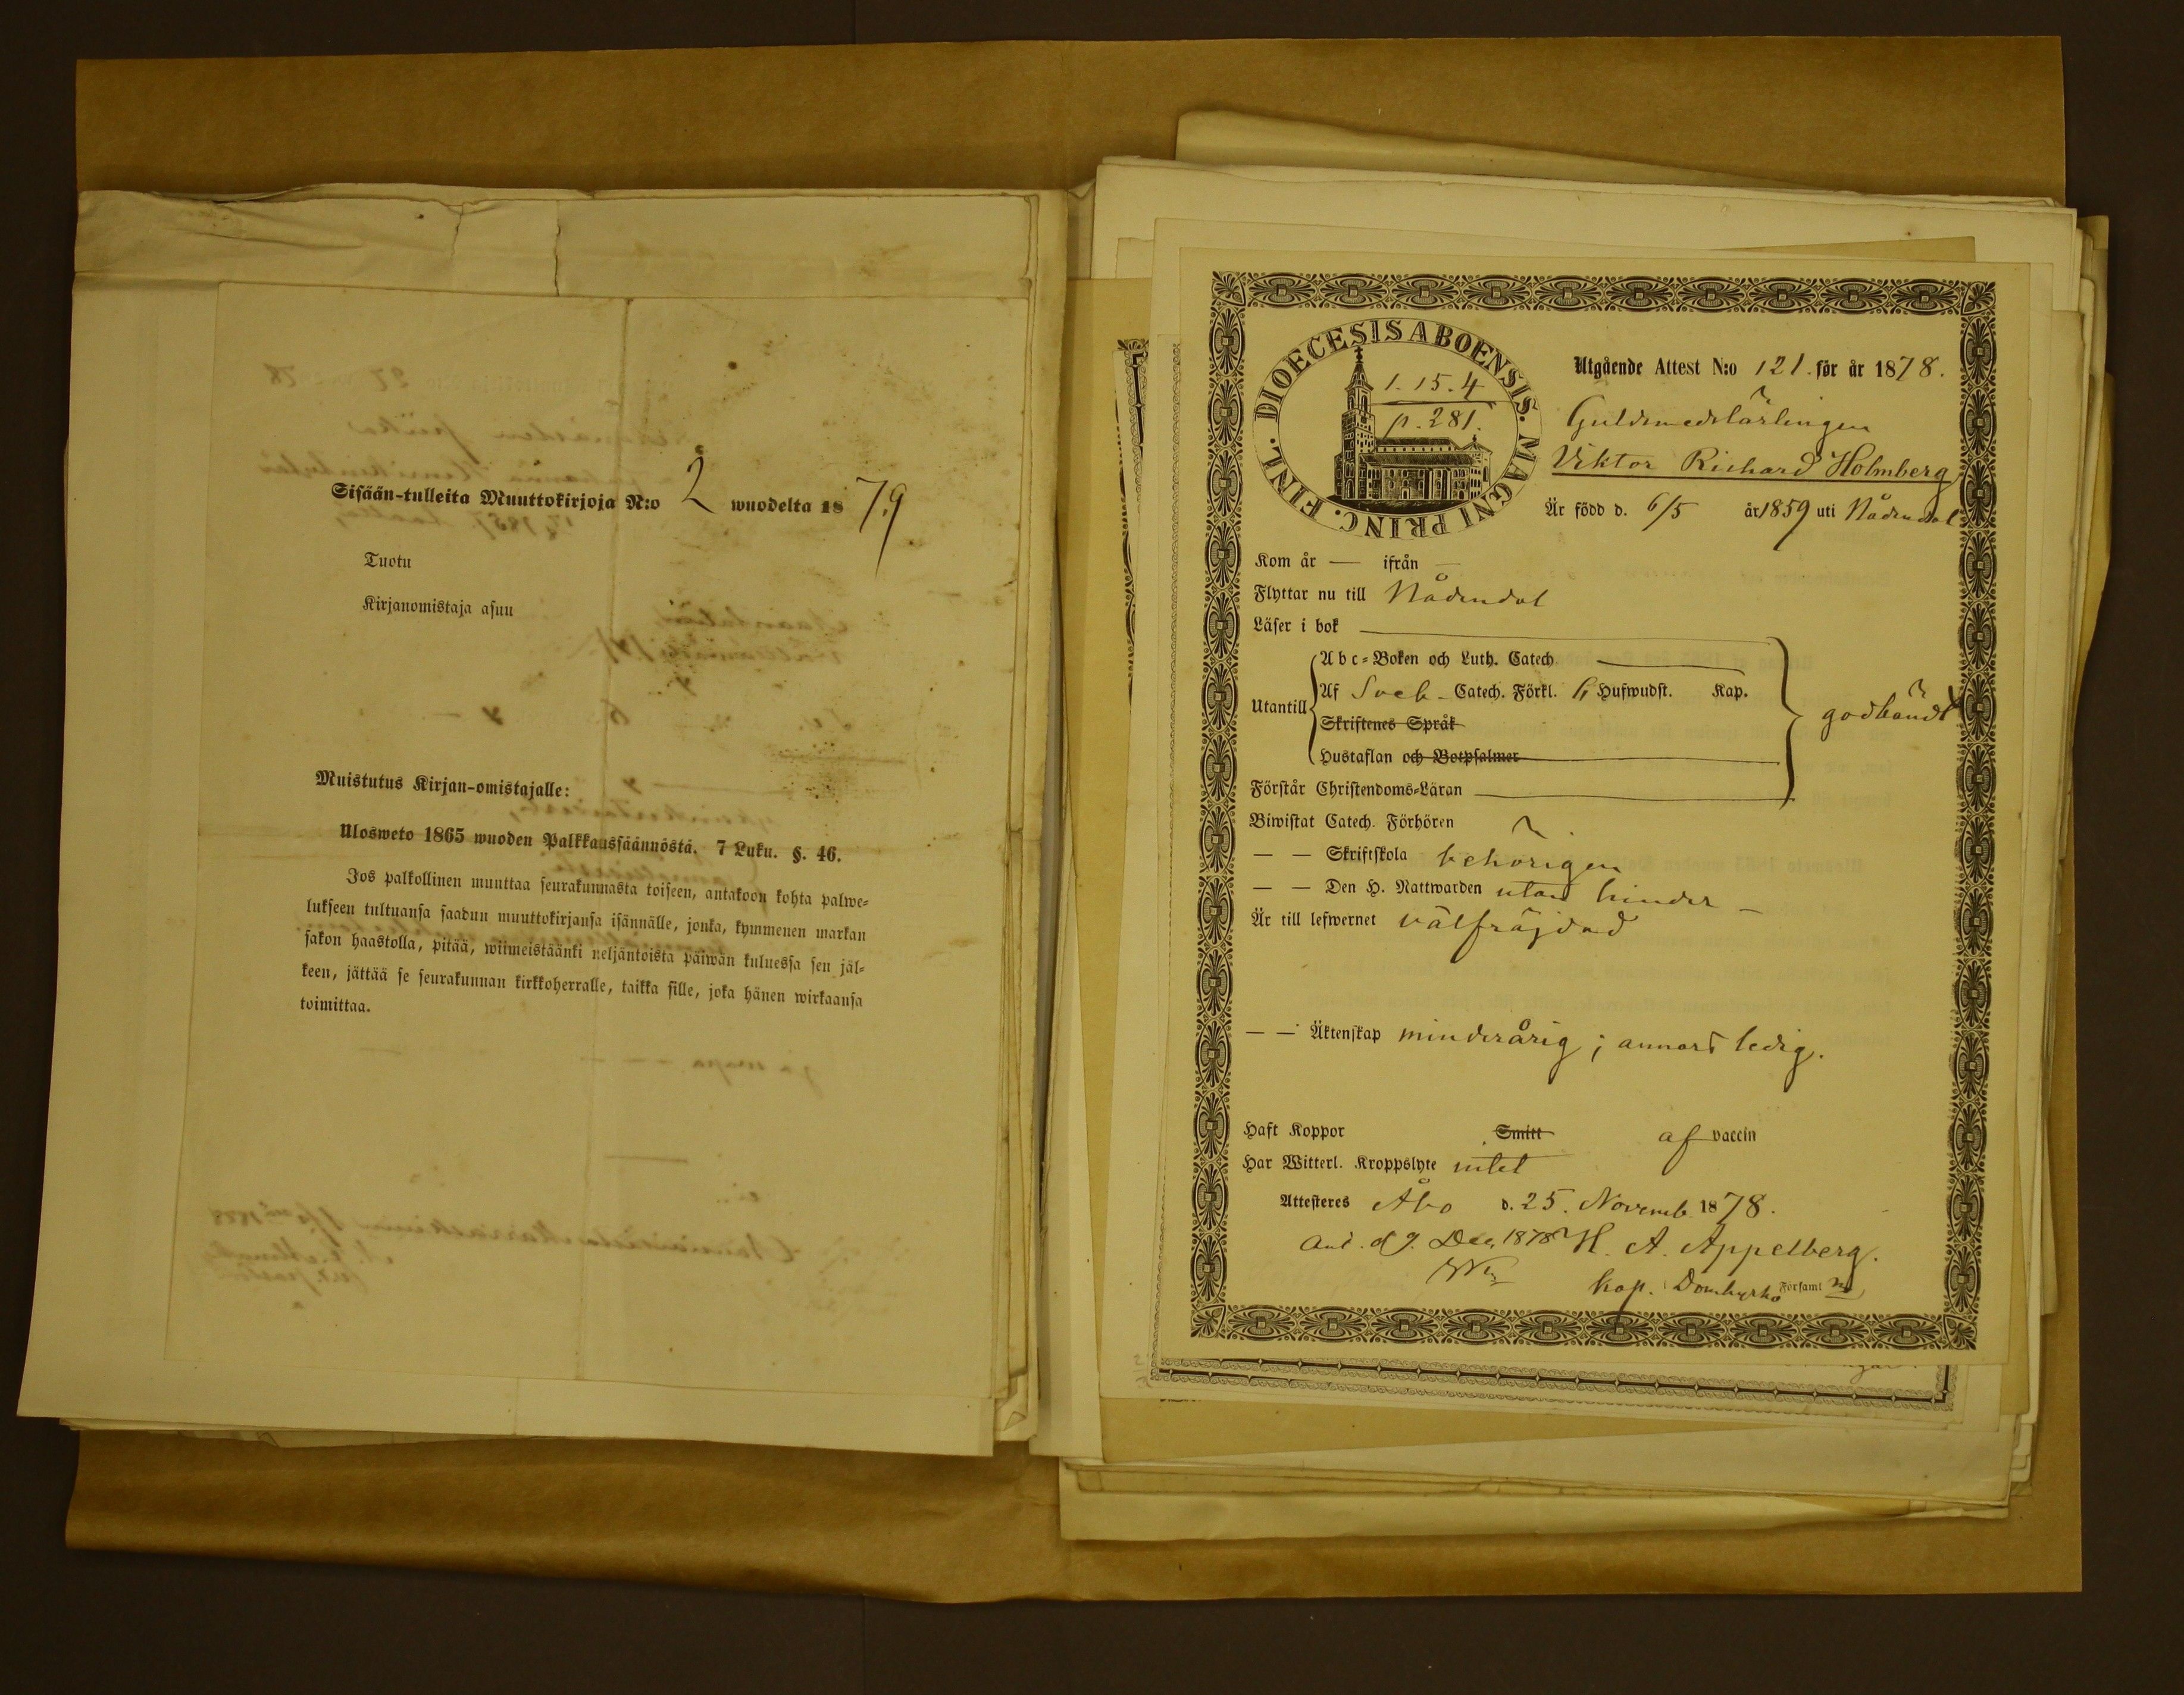 Sisään-tulleita Muuttokirjoja N:o 2 wuodelta 1879
Tuotu
Kirjanomistaja asuu
Muistutus Kirjan-omistajalle:
Ulosweto 1865 wuoden Palkkaussäännöstä. 7 Luku. §. 46.
Jos palkollinen muuttaa seurakunnasta toiseen, antakoon kohta palwe-
lukseen tultuansa saadun muuttokirjansa isännälle, jonka, kymmenen markan
sakon haastolla, pitää, wiimeistäänki neljäntoista päiwän kuluessa sen jäl-
keen, jättää se seurakunnan kirkkoherralle, taikka sille, joka hänen wirkaansa
toimittaa.
DIOECESIS ABOENSIS. MAGNI PRINC. FINL.
1. 15. 4
p. 281.
Utgående Attest N:o 121. för år 1878.
Guldsmedslärlingen
Viktor Richard Holmberg
Är född d. 6/5 år 1859 uti Nådendal
Kom år — ifrån —
Flyttar nu till Nådendal
Läser i bok
Utantill
Abc-Boken och Luth. Catech.
Af Sveb. Catech. Förkl. 6 Hufwudst. Kap.
Skriftenes Språk
Hustaflan och Botpsalmer
godkändt
Förstår Christendoms-Läran
Biwistat Catech. Förhören
— — Skriftskola behörigen
— — Den H. Nattwarden utan hinder —
Är till lefwernet välfräjdad
— — Äktenskap minderårig; annars ledig.
Haft Koppor Smitt af vaccin
Har Witterl. Kroppslyte intet
Attesteres Åbo d. 25. Novemb. 1878.
Anl. d 9. Dec. 1878 H. A. Appelberg.
Kap. Domkyrko Församl